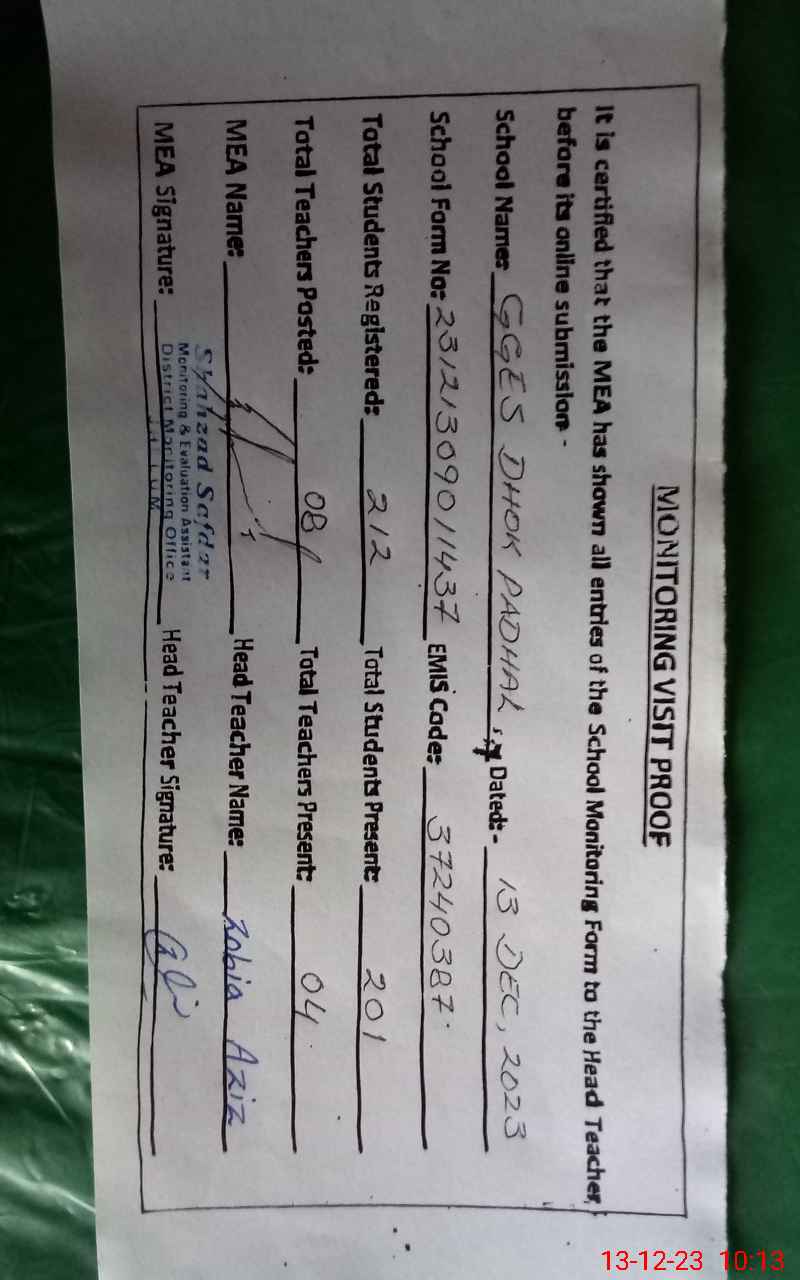 MONITORING VISIT PROOF
It is certified that the MEA has shown all entries of the School Monitoring Form to the Head Teacher,
before its online submission. -
School Name: GGES DHOK PADHAL, Dated:- 13 DEC, 2023
School Form No: 23121309011437 EMIS Code: 37240387.
Total Students Registered: 212 Total Students Present: 201
Total Teachers Posted: 08 Total Teachers Present: 04
MEA Name: Head Teacher Name: Robia Aziz
Shahzad Safdar
Monitoring & Evaluation Assistant
District Monitoring Office
MEA Signature: Head Teacher Signature:
13-12-23 10:13